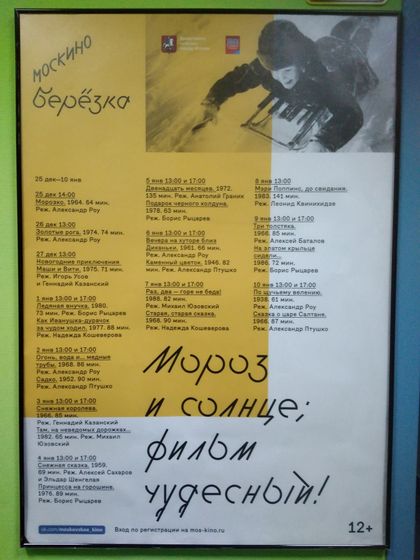 МОСКИНО
берёзка
25 дек—10 янв
25 дек 14:00
Морозко, 1964. 84 мин.
Реж. Александр Роу
26 дек 13:00
Золотые рога, 1974. 74 мин.
Реж. Александр Роу
27 дек 13:00
Новогодние приключения
Маши и Вити, 1975. 71 мин.
Реж. Игорь Усов
и Геннадий Казанский
1 янв 13:00 и 17:00
Ледяная внучка, 1980.
73 мин. Реж. Борис Рыцарев
Как Иванушка-дурачок
за чудом ходил, 1977. 88 мин.
Реж. Надежда Кошеверова
2 янв 13:00 и 17:00
Огонь, вода и... медные
трубы, 1968. 86 мин.
Реж. Александр Роу
Садко, 1952. 90 мин.
Реж. Александр Птушко
3 янв 13:00 и 17:00
Снежная королева,
1966. 85 мин.
Реж. Геннадий Казанский
Там, на неведомых дорожках...
1982. 65 мин. Реж. Михаил
Юзовский
4 янв 13:00 и 17:00
Снежная сказка, 1959.
69 мин. Реж. Алексей Сахаров
и Эльдар Шенгелая
Принцесса на горошине,
1976. 89 мин.
Реж. Борис Рыцарев
5 янв 13:00 и 17:00
Двенадцать месяцев, 1972.
135 мин. Реж. Анатолий Граник
Подарок черного колдуна,
1978. 63 мин.
Реж. Борис Рыцарев
6 янв 13:00 и 17:00
Вечера на хуторе близ
Диканьки, 1961. 66 мин.
Реж. Александр Роу
Каменный цветок, 1946. 82
мин. Реж. Александр Птушко
7 янв 13:00 и 17:00
Раз, два — горе не беда!
1988. 82 мин.
Реж. Михаил Юзовский
Старая, старая сказка,
1968. 90 мин.
Реж. Надежда Кошеверова
8 янв 13:00
Мэри Поппинс, до свидания,
1983. 141 мин.
Реж. Леонид Квинихидзе
9 янв 13:00 и 17:00
Три толстяка,
1966. 85 мин.
Реж. Алексей Баталов
На златом крыльце
сидели...
1986. 72 мин.
Реж. Борис Рыцарев
10 янв 13:00 и 17:00
По щучьему велению,
1938. 61 мин.
Реж. Александр Роу
Сказка о царе Салтане,
1966. 87 мин.
Реж. Александр Птушко
Мороз
и солнце;
фильм
чудесный!
vk.com/moskovskoe_kino
Вход по регистрации на mos-kino.ru
12+